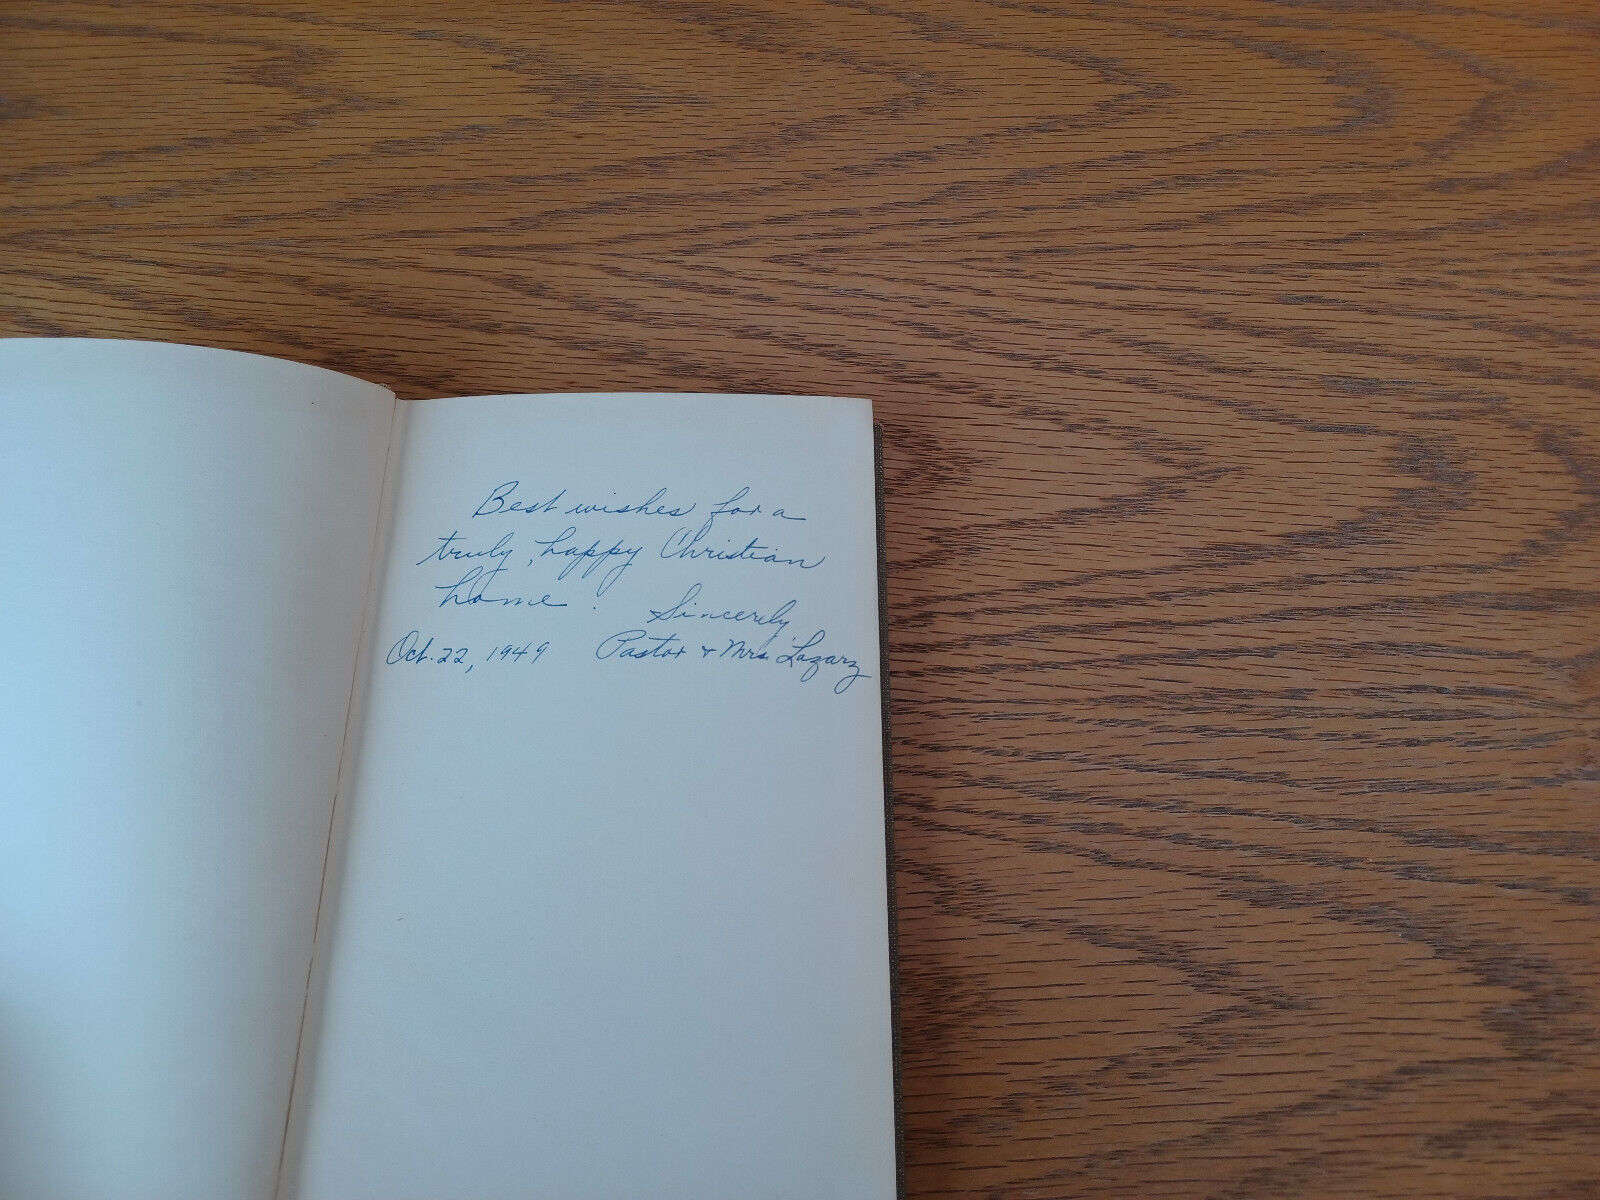 Best wishes for a
truly, happy Christian
home. Sincerely
Oct. 22, 1949 Pastor + Mrs. Lazarz